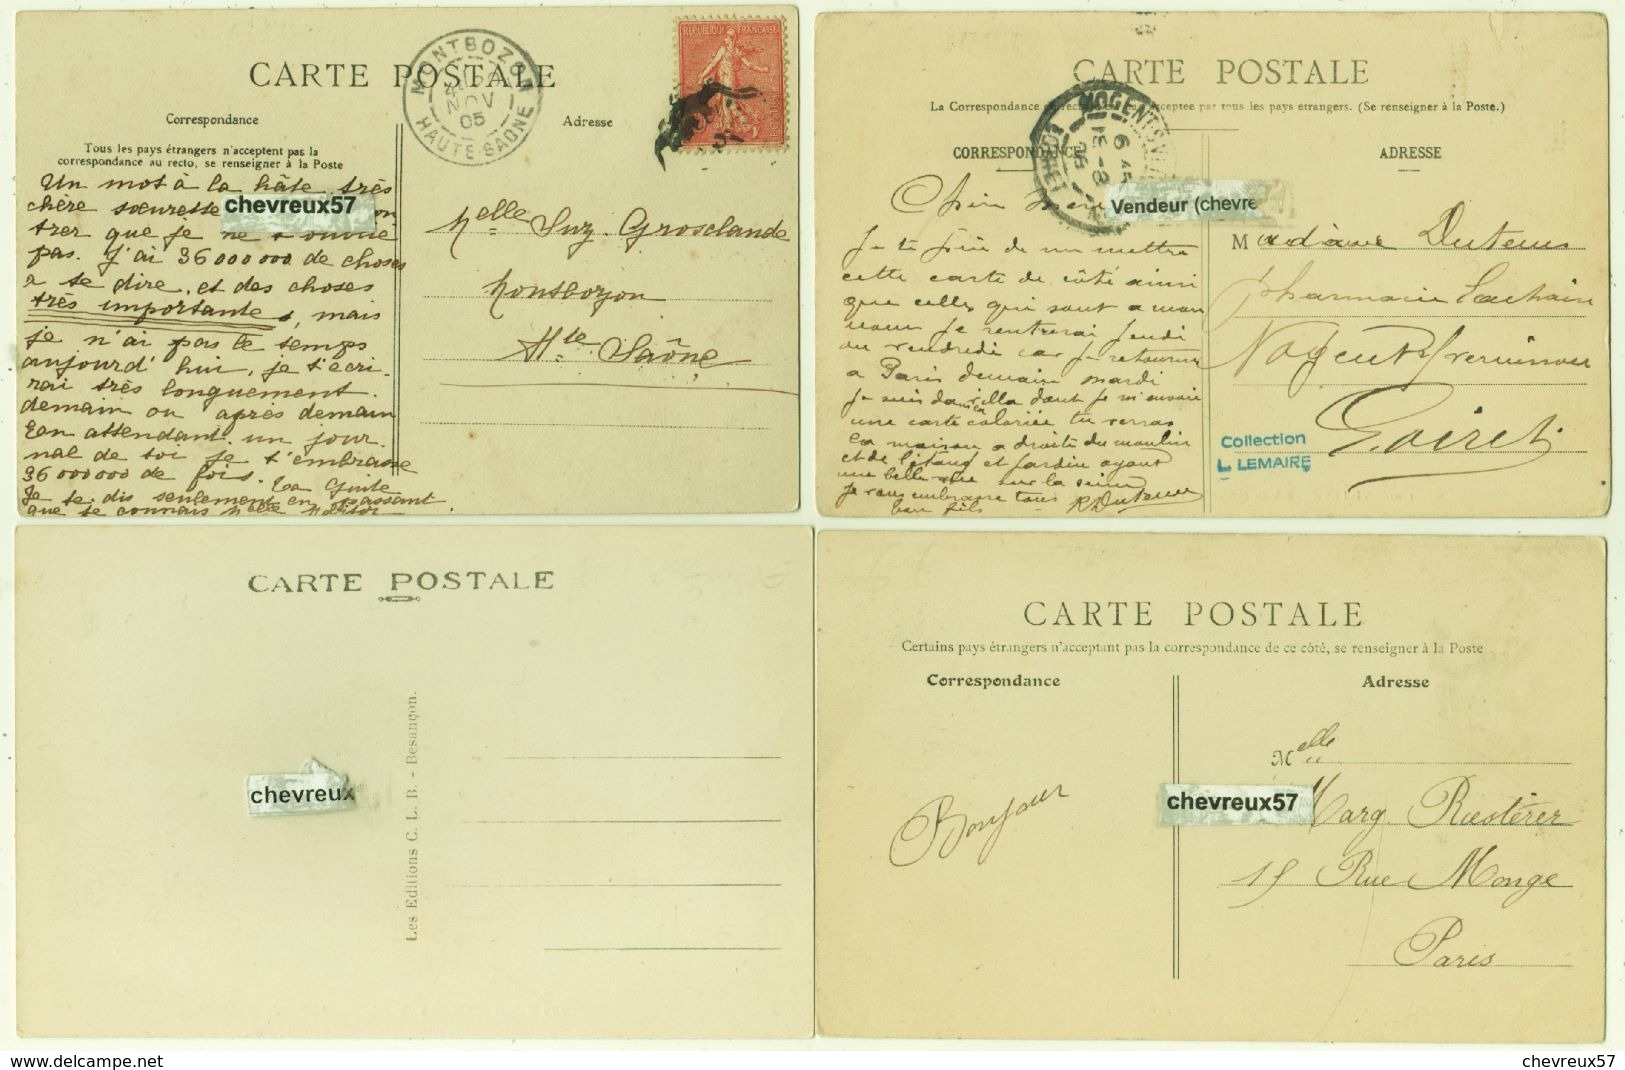 CARTE POSTALE
MONTBOZON
NOV
05
HAUTE-SAONE
REPUBLIQUE FRANÇAISE
Correspondance
Adresse
Tous les pays étrangers n'acceptent pas la
correspondance au recto, se renseigner à la Poste
Un mot à la hâte, très
chère sœuresse
chevreux57
trer que je ne t'oublie
pas. J'ai 36 000 000 de choses
a te dire, et des choses
très importantes, mais
je n'ai pas le temps
aujourd'hui, je t'écri.
rai très longuement.
demain ou après demain
En attendant un jour.
nal de toi je t'embrasse
36 000 000 de fois.
Je te dis seulement en passant
que je connais Melle
Melle Suz. Grosclaude
Montbozon
Hte Saône
CARTE POSTALE
La Correspondance au recto acceptée par tous les pays étrangers. (Se renseigner à la Poste.)
CORRESPONDANCE
ADRESSE
NOGENT-S-V
LOIRET
Vendeur (chevre
Je te prie de me mettre
cette carte de côté ainsi
que celles qui sont a mon
nom je rentrerai jeudi
ou vendredi car je retourne
a Paris demain mardi
je suis dans villa dont je m'envoie
une carte coloriée tu verras
la maison a droite du moulin
et de l'étang et jardin ayant
une belle vue sur la seine
je vous embrasse tous
ton fils R Duteurs
Madame Duteurs
pharmacie
Nogent s/ vernisson
Loiret
Collection
L. LEMAIRE
CARTE POSTALE
Les Editions C. L. B. - Besançon.
chevreux
CARTE POSTALE
Certains pays étrangers n'acceptant pas la correspondance de ce côté, se renseigner à la Poste
Correspondance
Adresse
Bonjour
Melle
chevreux57
Marg. Rœsterer
15 Rue Monge
Paris
www.delcampe.net
chevreux57